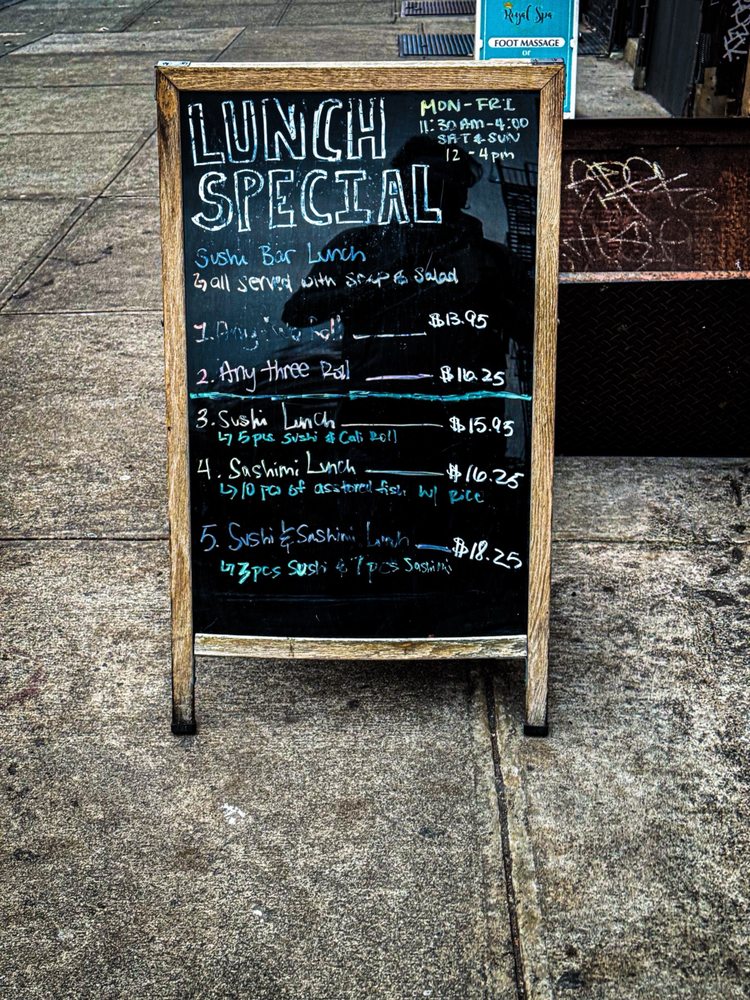 Royal Spa
FOOT MASSAGE
or
LUNCH
SPECIAL
MON-FRI
11:30 AM-4:00
SAT & SUN
12-4pm
Sushi Bar Lunch
↳ all served with soup & Salad
1. Any Roll $13.95
2. Any three Roll $16.25
3. Sushi Lunch $15.95
↳ 5 pcs sushi & Cali Roll
4. Sashimi Lunch $16.25
↳ 10 pcs of asstored fish w/ Rice
5. Sushi & Sashimi Lunch $18.25
↳ 3pcs Sushi & 7pcs Sashimi